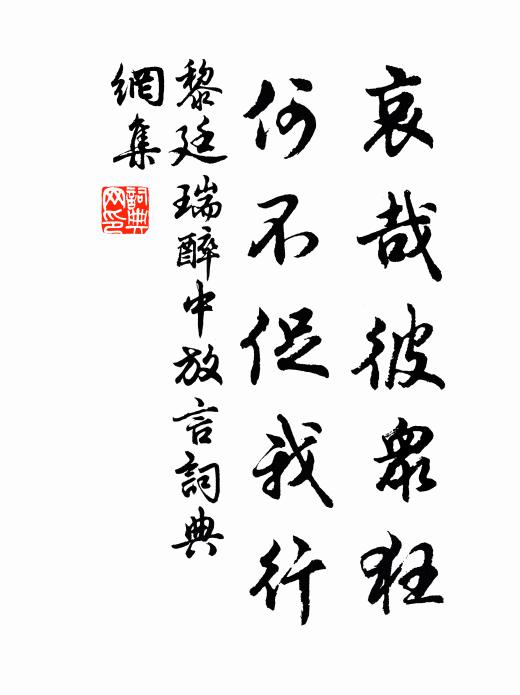 哀哉彼眾狂
何不促我行
黎廷瑞醉中放言詞典
網集
詞典網印